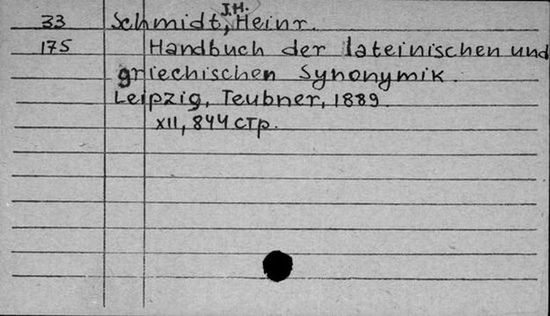 J.H.
33 Schmidt, Heinr.
175 Handbuch der lateinischen und
griechischen Synonymik.
Leipzig, Teubner, 1889.
XII, 844 стр.